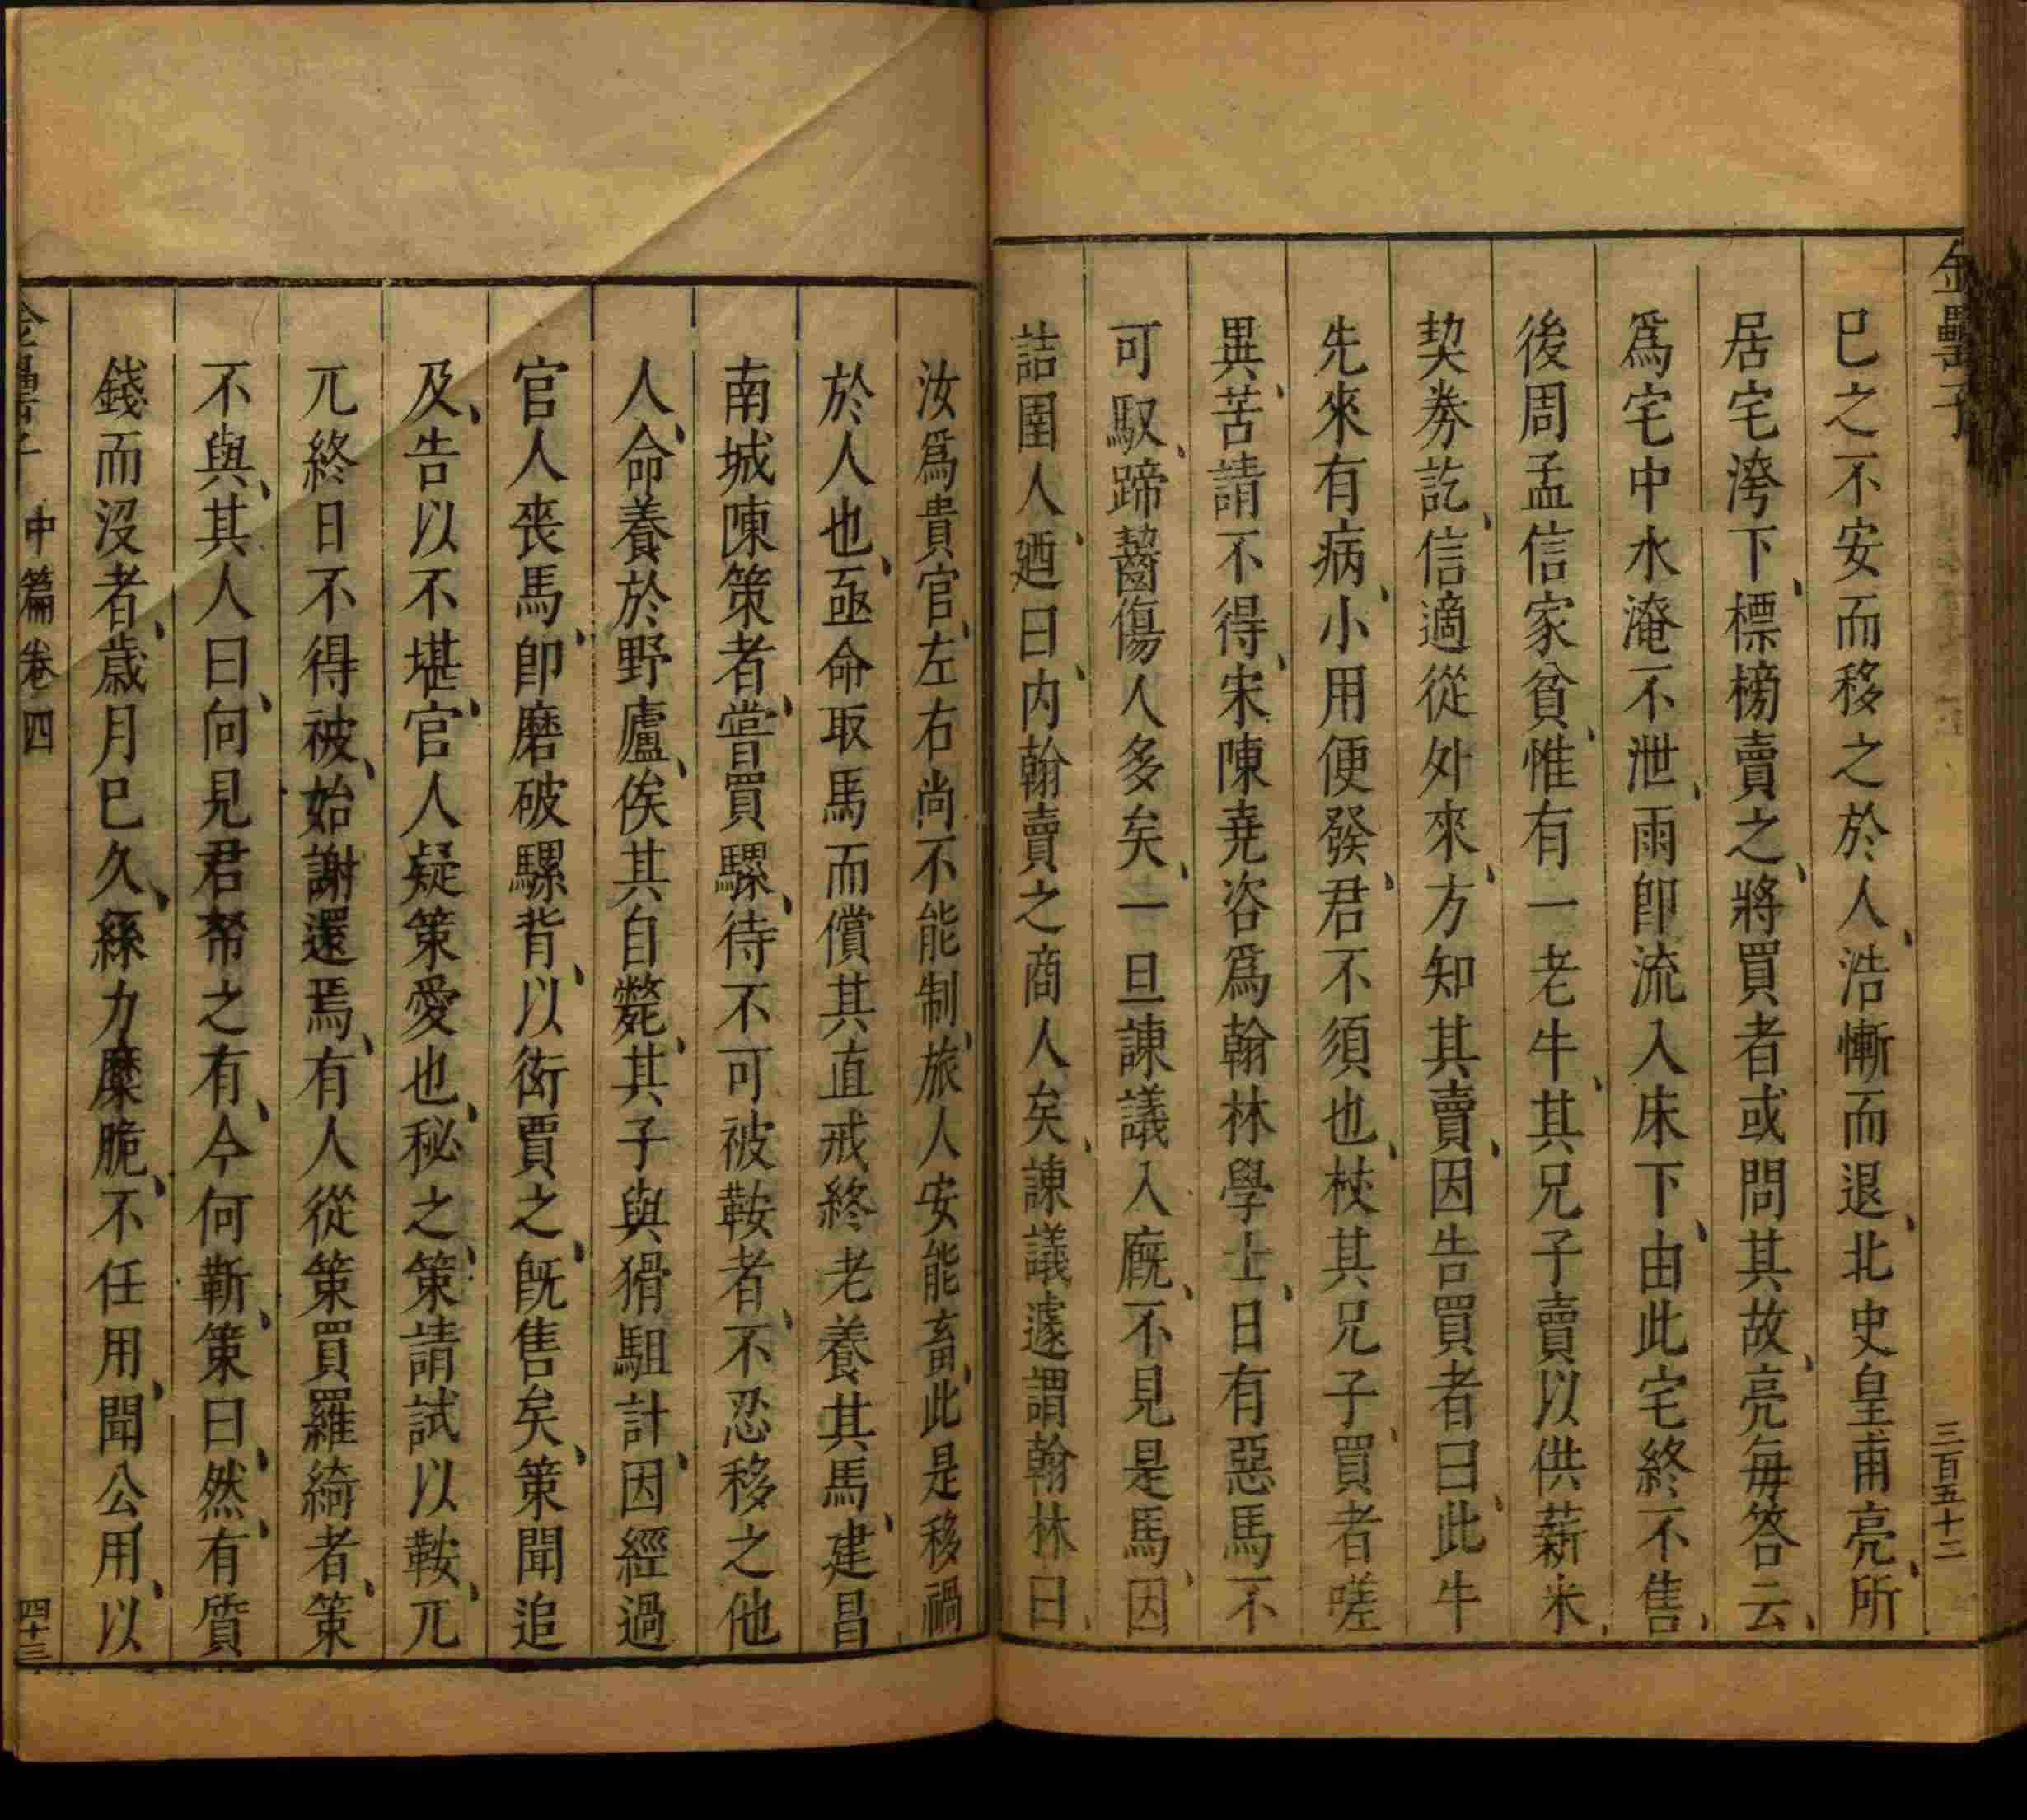 金罍子
三百五十二
已之不安而移之於人浩慚而退北史皇甫亮所
居宅洿下標榜賣之將買者或問其故亮每答云
爲宅中水淹不泄雨卽流入床下由此宅終不售
後周孟信家貧惟有一老牛其兄子賣以供薪米
契券訖信適從外來方知其賣因告買者曰此牛
先來有病小用便發君不須也杖其兄子買者嗟
異苦請不得宋陳尭咨爲翰林學士日有惡馬不
可馭蹄齧傷人多矣一旦諫議入廐不見是馬因
詰圉人廼曰内翰賣之商人矣諫議遽謂翰林曰
汝爲貴官左右尚不能制旅人安能畜此是移禍
於人也亟命取馬而償其直戒終老養其馬建昌
南城陳策者嘗買騾待不可被鞍者不忍移之他
人命養於野廬俟其自斃其子與猾駔計因經過
官人喪馬卽磨破騾背以衒賈之旣售矣策聞追
及告以不堪官人疑策愛也秘之策請試以鞍兀
兀終日不得被始謝還焉有人從策買羅綺者策
不與其人曰向見君帑之有今何靳策曰然有質
錢而沒者歲月已久絲力糜脆不任用聞公用以
金罍子
中篇卷四
四十三